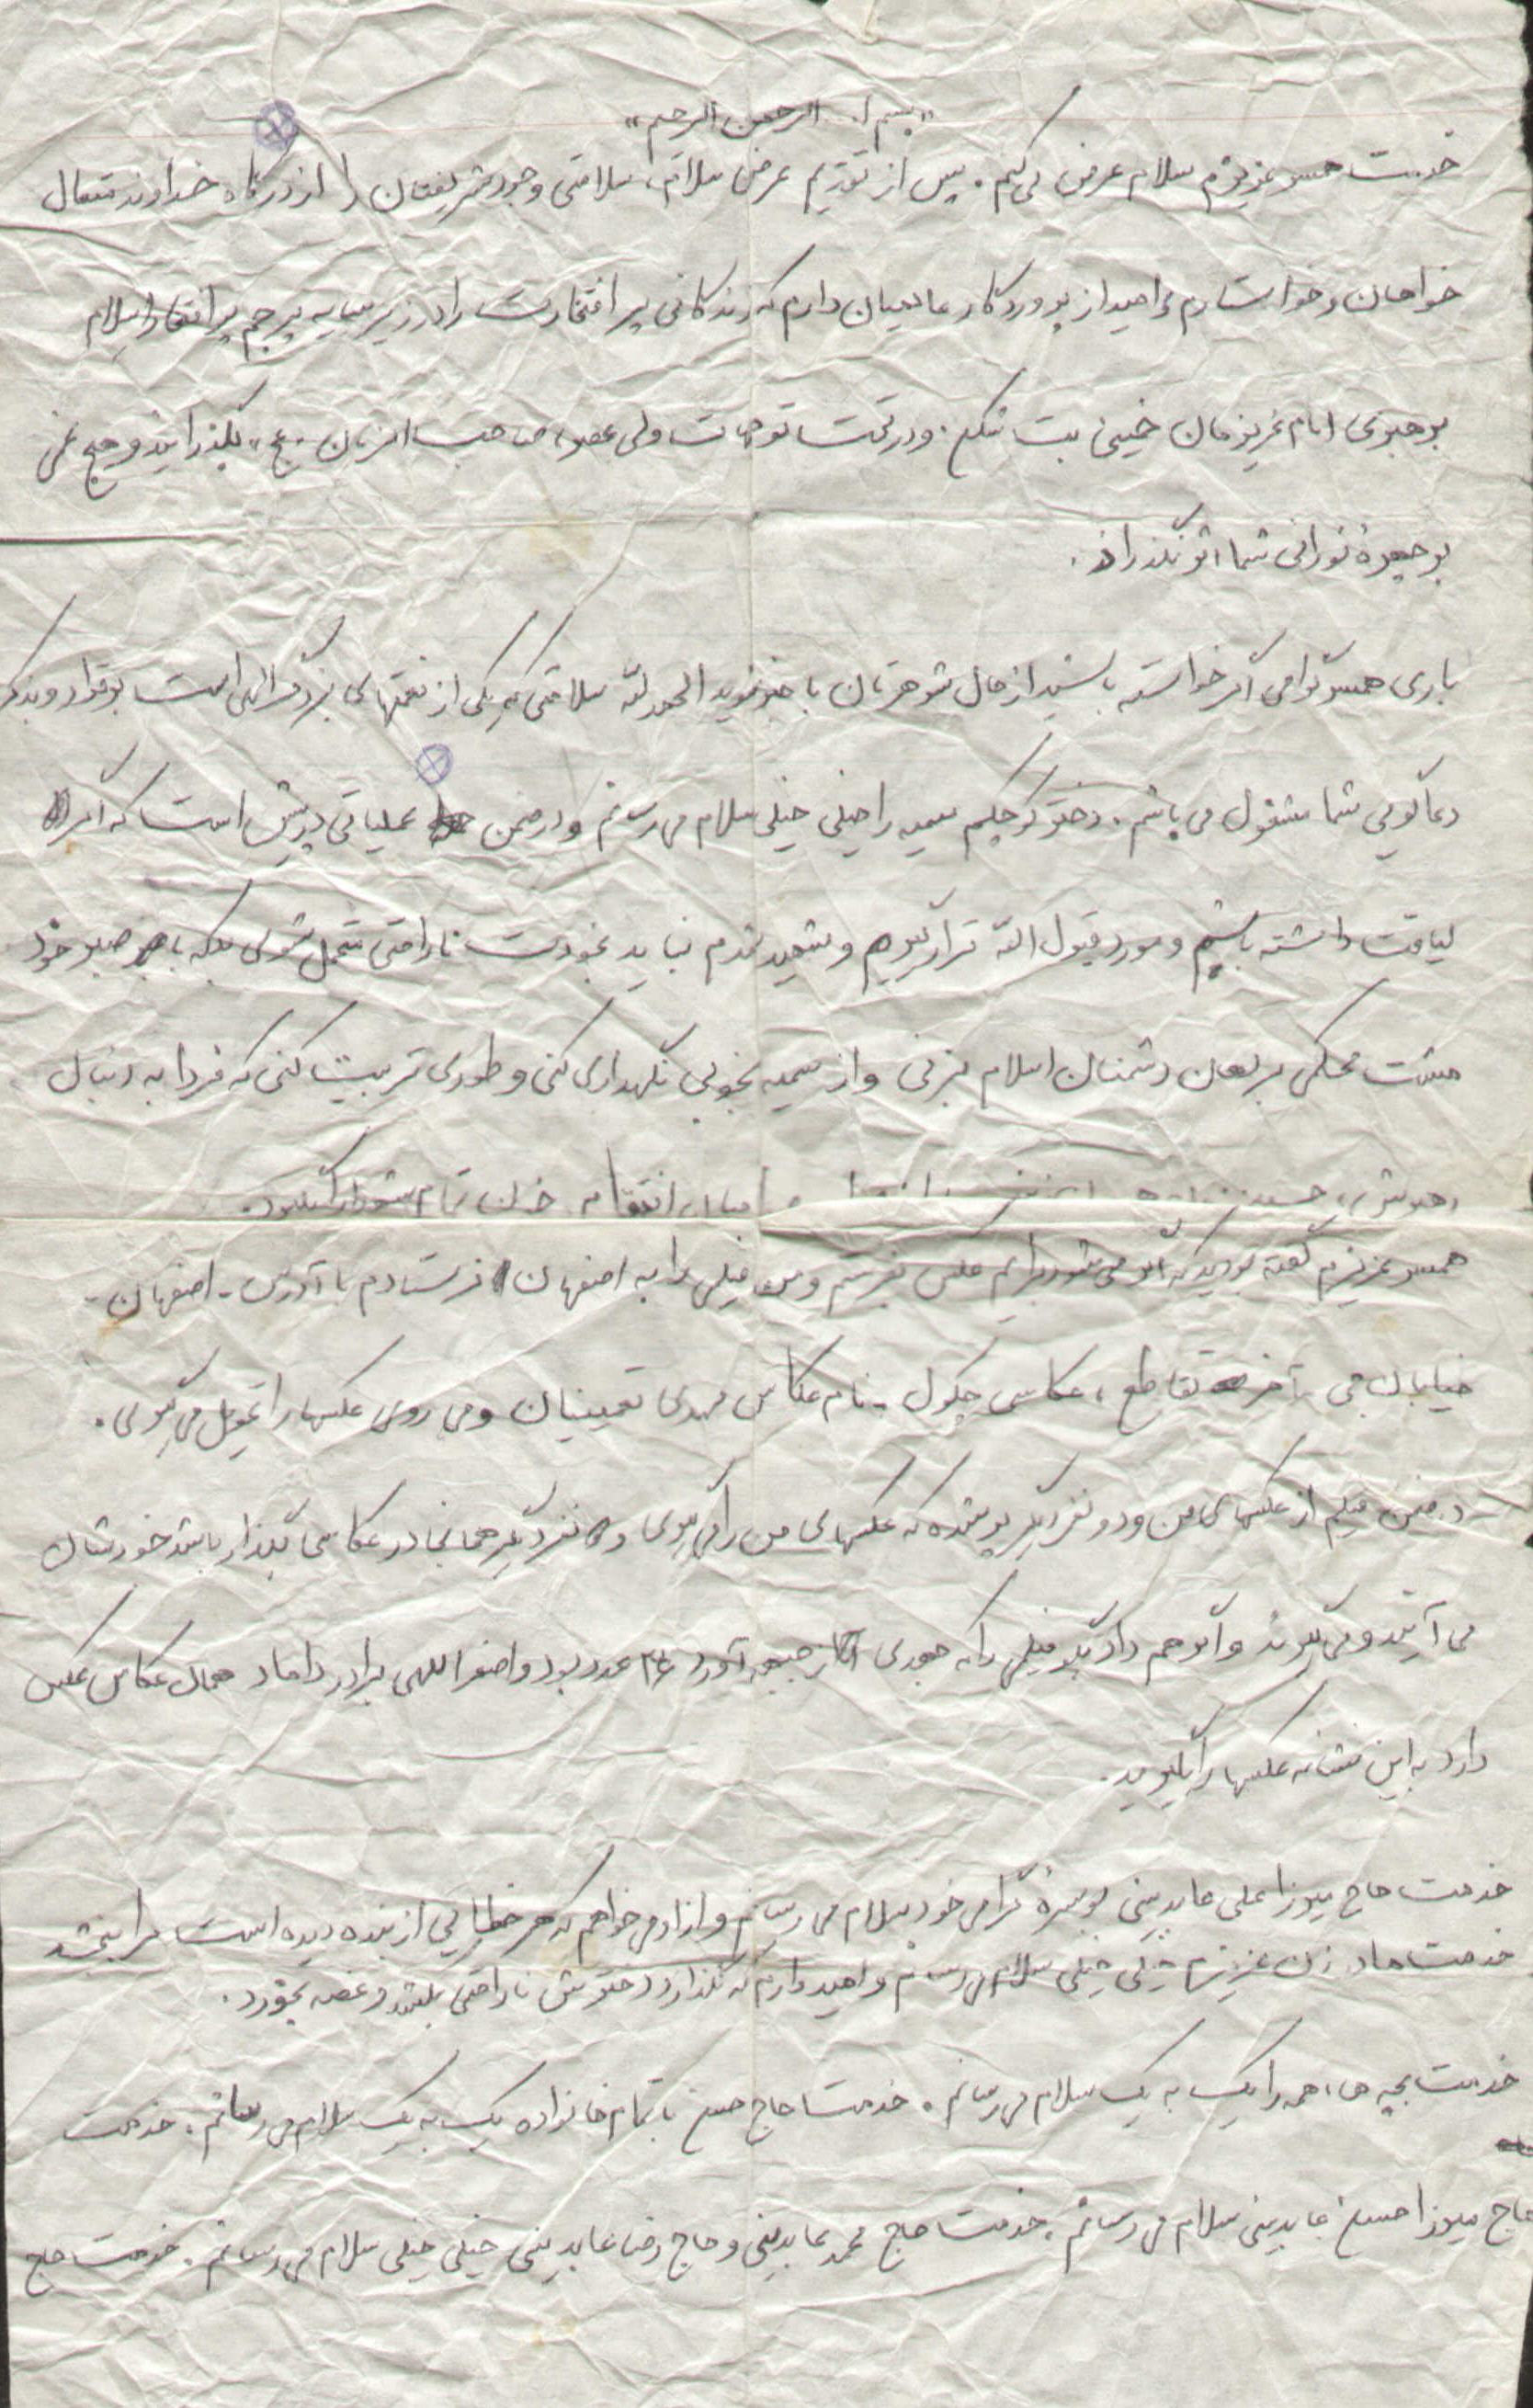 «بسم ا... الرحمن الرحیم»
خدمت همسر عزیزم سلام عرض می‌کنم. پس از تقدیم عرض سلام، سلامتی وجود شریفتان را از درگاه خداوند متعال
خواهان و خواستارم و امید از پروردگار عالمیان دارم که زندگانی پر افتخارت را در زیر سایه پرچم پر افتخار اسلام
برهبری امام عزیزمان خمینی بت شکن. و در تحت توجهات ولی عصر، صاحب الزمان «عج» بگذرانید و هیچ غمی
بر چهره نورانی شما اثر نگذراند.
باری همسر گرامی اگر خواسته باشید از حال شوهرتان با خبر شوید الحمدلله سلامتی که یکی از نعمتهای بزرگ الهی است برقرار و بذکر
دعاگویی شما مشغول می باشم. دختر کوچکم سمیه را خیلی خیلی سلام می رسانم و در ضمن عملیاتی در پیش است که اگر
لیاقت داشته باشیم و مورد قبول الله قرار گیریم و شهید شدم نباید بخودت ناراحتی متحمل شوی بلکه با صبر خود
مشت محکمی بر دهان دشمنان اسلام بزنی و از سمیه بخوبی نگهداری کنی و طوری تربیت کنی که فردا به دنبال
رهبرش، حسین زمانه، و انتقام خون تمام شهدا را بگیرد.
همسر عزیزم گفته بودید که اگر می شود برایم عکس بفرستم و من فیلمی را به اصفهان فرستادم با آدرس - اصفهان -
خیابان جی - آخر تقاطع، عکاسی چکول - نام عکاس مهدی نعیمیان و می روی عکسها را تحویل می گیری.
در ضمن فیلم از عکسهای من و دو نفر دیگر پر شده که عکسهای من را می گیری و نفر دیگر همانجا در عکاسی بگذار باشد خودشان
می آیند و می گیرند و اگر هم داد بگو فیلمی را که مهدی از جبهه آورد ۳۶ عدد بود و اصغر اللهی برادر داماد همان عکاس عکس
دارد به این نشانه عکسها را بگیرید.
خدمت حاج میرزا علی عابدینی بوسیره گرامی خود سلام می رسانم و از او می خواهم که هر خطایی از بنده دیده است مرا ببخشد
خدمت مادر زن عزیزم خیلی خیلی سلام می رسانم و امیدوارم که نگذارد دخترش ناراحتی بکشد و غصه بخورد.
خدمت بچه ها، همه را یک به یک سلام می رسانم. خدمت حاج حسین با تمام خانواده یک به یک سلام می رسانم. خدمت
حاج میرزا حسین عابدینی سلام می رسانم. خدمت حاج محمد عابدینی و حاج رضا عابدینی خیلی خیلی سلام می رسانم. خدمت حاج